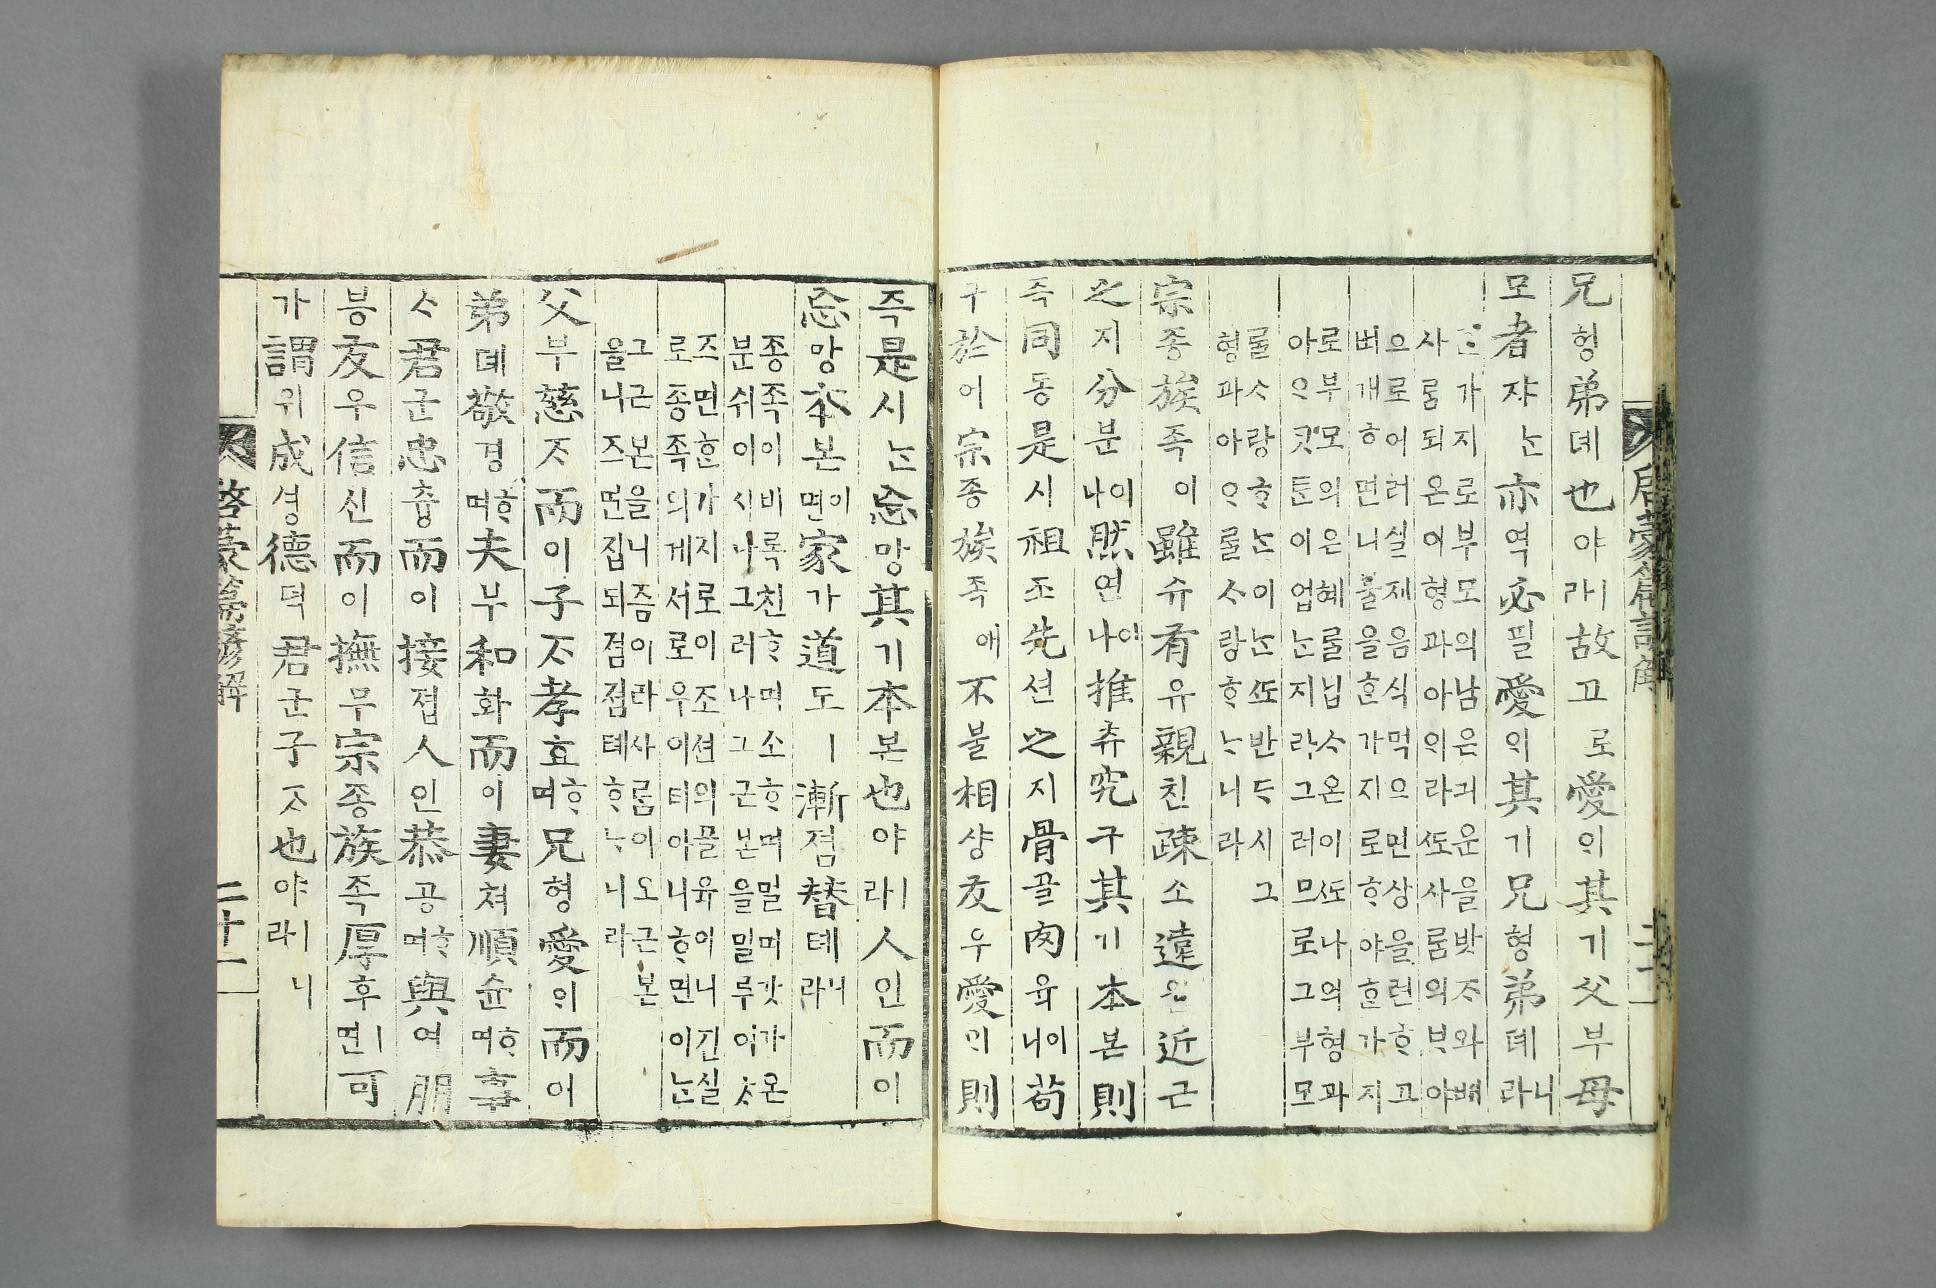 啓蒙篇諺解
兄형弟뎨也야ㅣ라故고로愛ᄋᆡ其기父부母
모者쟈ᄂᆞᆫ亦역必필愛ᄋᆡ其기兄형弟뎨니라
ᄒᆞᆫ가지로부모의남은긔운을밧ᄌᆞ와ᄲᅢ
사ᄅᆞᆷ되온이형과아ᄋᆡ라ᄯᅩ사ᄅᆞᆷ의ᄇᆞ야
으로어러실제음식먹으면상을련ᄒᆞ고
벼개ᄒᆞ면니블을ᄒᆞᆫ가지로ᄒᆞ야ᄒᆞᆫ가지
로부모의은혜ᄅᆞᆯ닙ᄉᆞ온이ᄯᅩ나의형과
아ᄋᆞᄀᆞᆺᄐᆞᆫ이업ᄂᆞᆫ지라그러므로그부모
ᄅᆞᆯᄉᆞ랑ᄒᆞᄂᆞᆫ이ᄂᆞᆫᄯᅩ반ᄃᆞ시그
형과아ᄋᆞᄅᆞᆯᄉᆞ랑ᄒᆞᄂᆞ니라
宗종族족이雖슈有유親친疎소遠원近근
之지分분이나然연이나推츄究구其기本본則
즉同동是시祖조先션之지骨골肉육이니苟
구於어宗종族족애不불相샹友우愛ᄋᆡ則
즉是시ᄂᆞᆫ忘망其기本본也야ㅣ라人인而이
忘망本본이면家가道도ㅣ漸졈替톄니라
종족이비록친ᄒᆞ며소ᄒᆞ며멀며갓가온
분쉬이시나그러나그근본을밀루어ᄎᆞ
즈면ᄒᆞᆫ가지로이조션의골육이니진실
로종족의게서로우이티아니ᄒᆞ면이ᄂᆞᆫ
그근본을니즘이라사ᄅᆞᆷ이오근본
을니즈면집되졈졈톄ᄒᆞᄂᆞ니라
父부慈ᄌᆞ而이子ᄌᆞ孝효ᄒᆞ며兄형愛ᄋᆡ而이
弟뎨敬경ᄒᆞ며夫부和화而이妻쳐順슌ᄒᆞ며事
ᄉᆞ君군忠튱而이接졉人인恭공ᄒᆞ며與여朋
븡友우信신而이撫무宗종族족厚후ㅣ면可
가謂위成셩德덕君군子ᄌᆞ也야ㅣ니라
啓蒙篇諺解 二十一